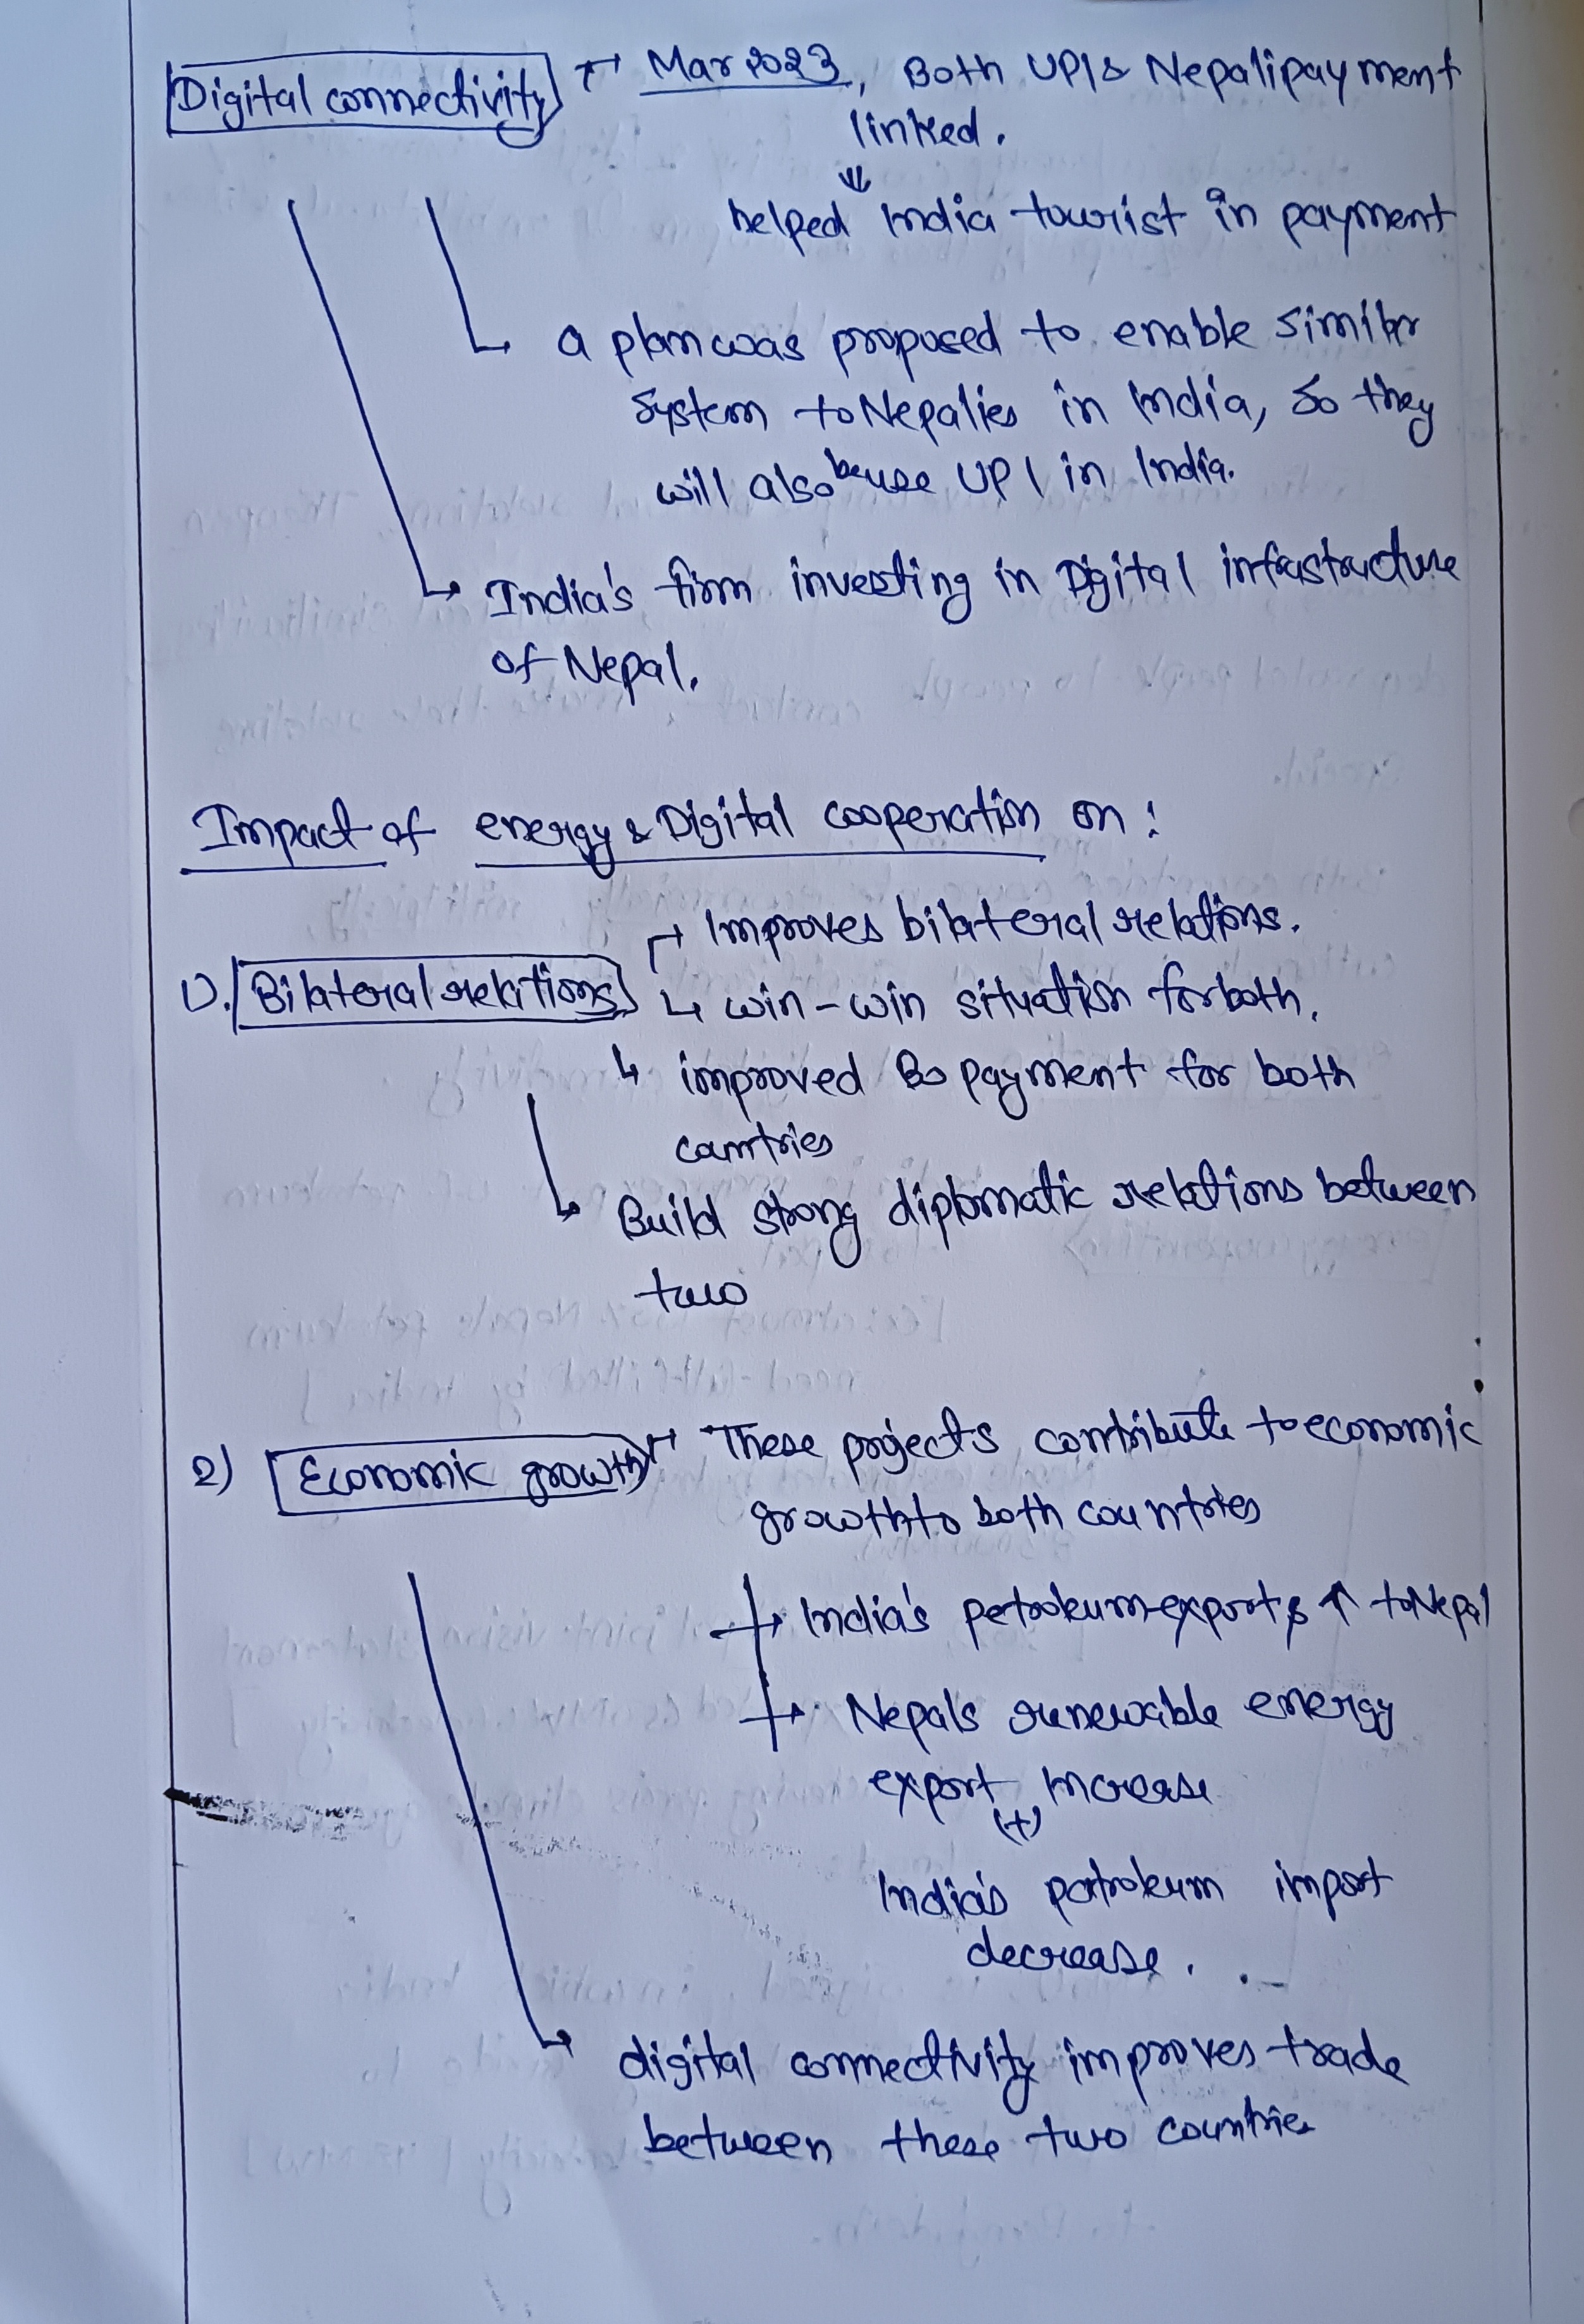 Digital connectivity → Mar 2023, Both UPI & Nepali payment
linked.
⇓
helped India tourist in payment
a plan was proposed to enable similar
system to Nepalies in India, so they
will also be use UPI in India.
India's firm investing in Digital infrastructure
of Nepal.
Impact of energy & Digital cooperation on :
→ Improves bilateral relations.
1). Bilateral relations ↳ win-win situation for both.
↳ improved Bo payment for both
countries
↳ Build strong diplomatic relations between
two
2) Economic growth → These projects contribute to economic
growth to both countries
→ India's petroleum exports ↑ to Nepal
→ Nepals renewable energy
export increase
(+)
India's petroleum import
decrease.
↳ digital connectivity improves trade
between these two countries